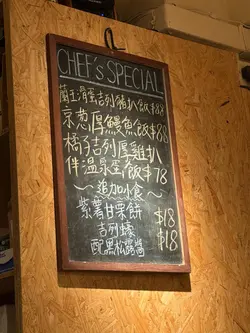 CHEF's SPECIAL
蘭王滑蛋吉列豬扒飯$88
京葱厚鰻魚飯$88
橘子吉列厚雞扒
伴溫泉蛋飯$78
~追加小食~
紫薯甘栗餅 $18
吉列蠔 $18
配黑松露醬